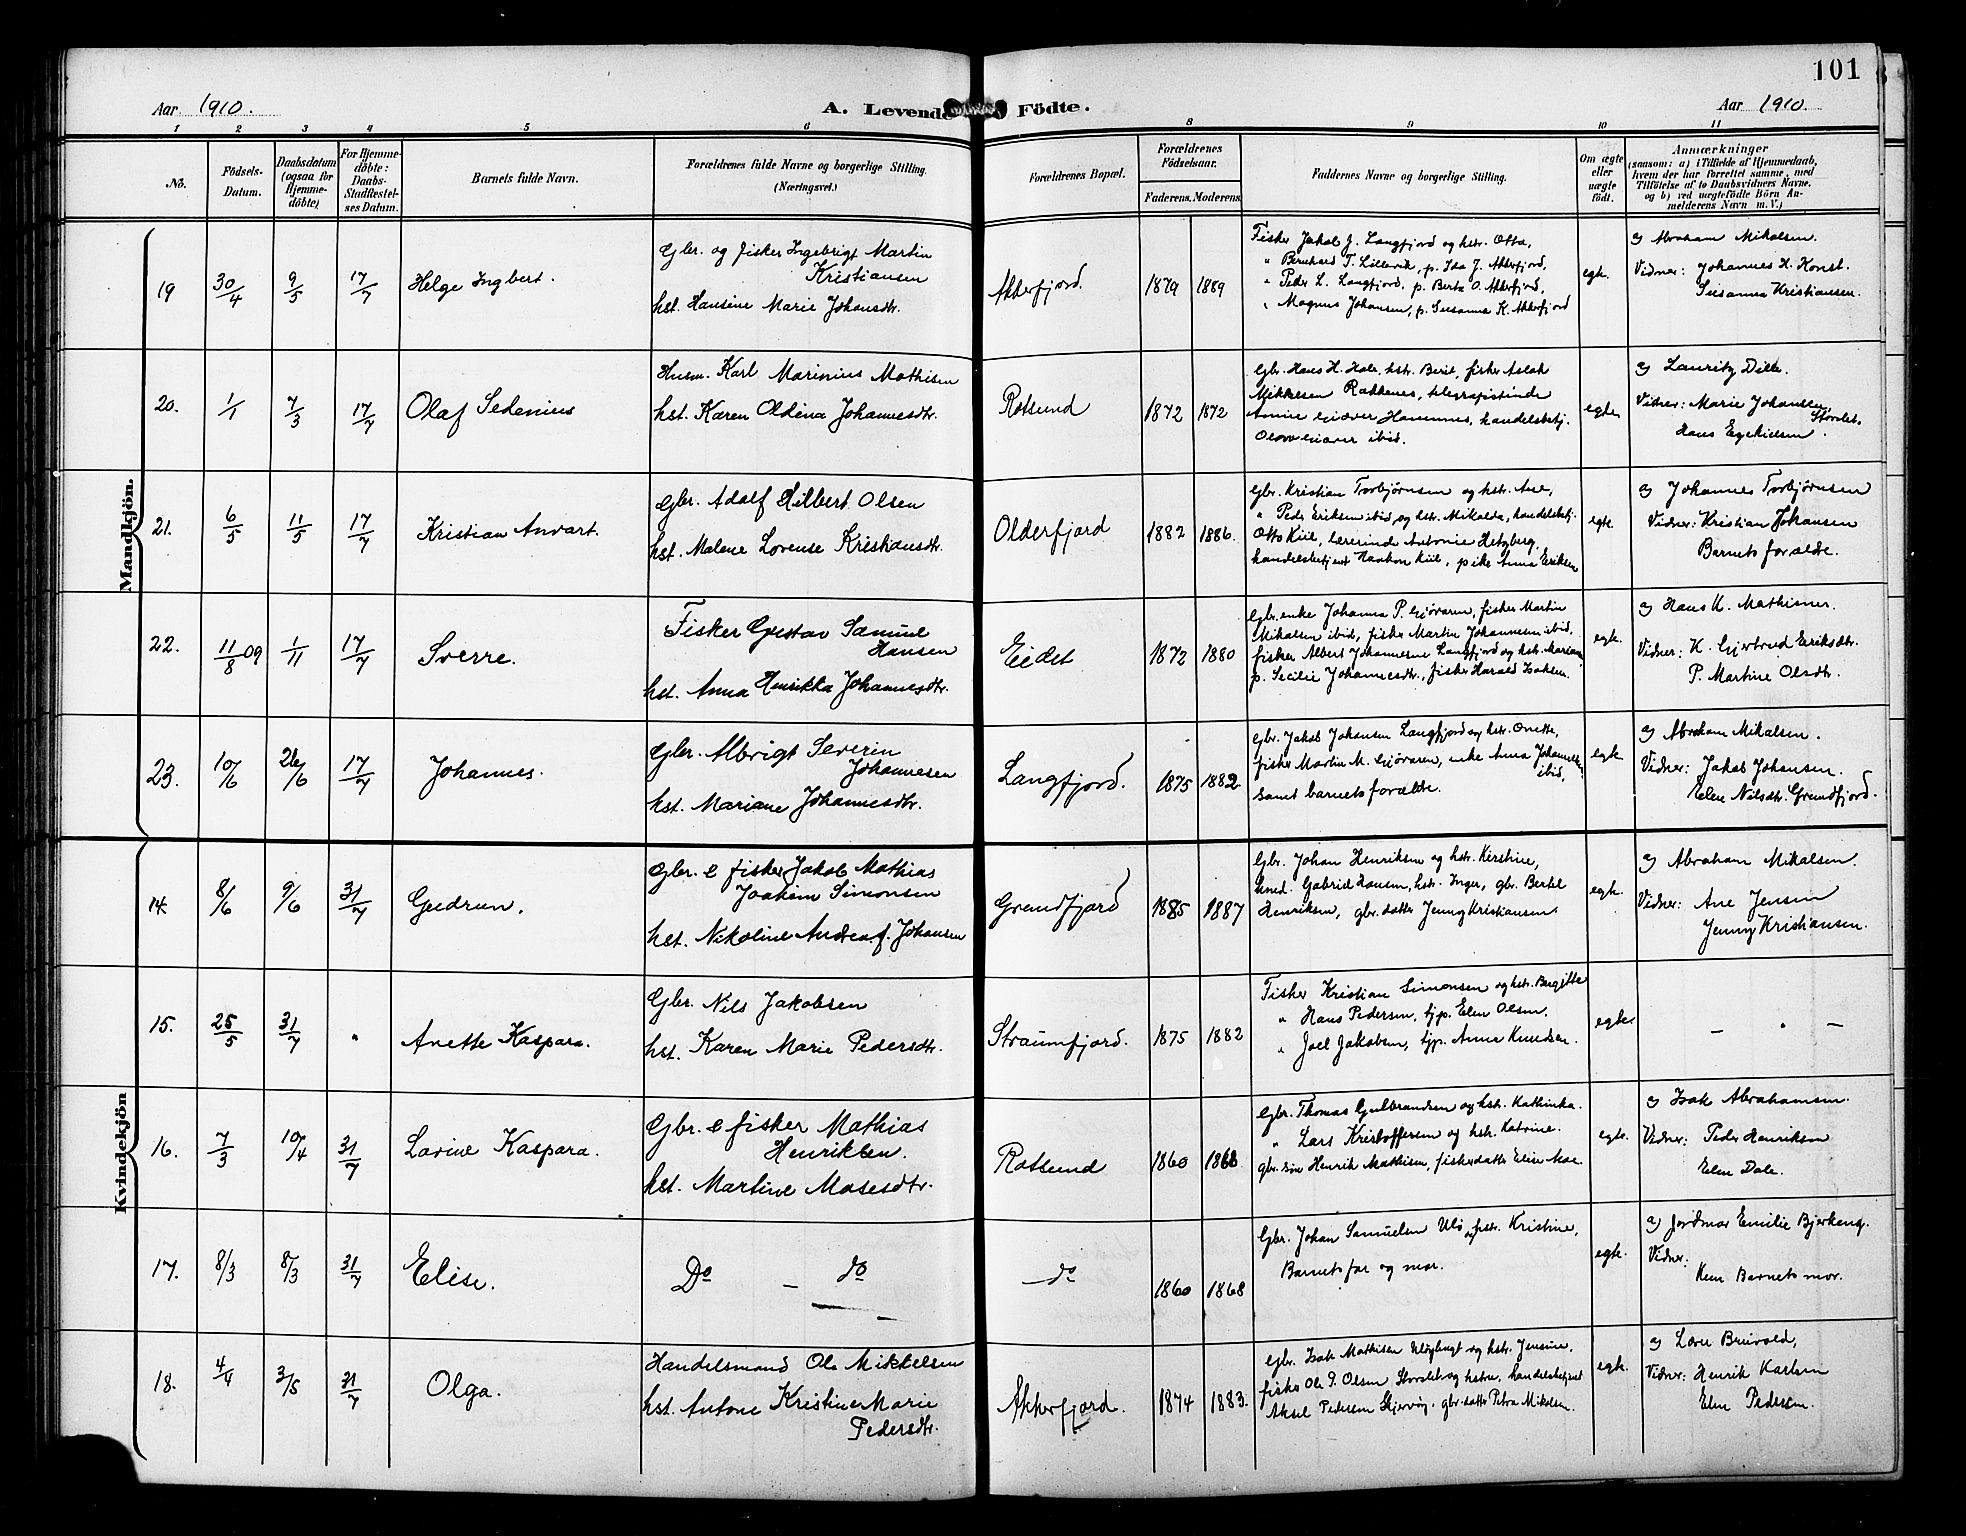 101
Aar 1910.
A. Levende Födte.
Aar 1910.
1 2 3 4 5 6 8 9 10 11
No.
Födsels-Datum.
Daabsdatum (ogsaa for Hjemme-döbte)
For Hjemme-döbte: Daabs-Stadfæstel-ses Datum.
Barnets fulde Navn.
Forældrenes fulde Navne og borgerlige Stilling.
(Næringsvei.)
Forældrenes Bopæl.
Forældrenes Födselsaar.
Faderens. Moderens.
Faddernes Navne og borgerlige Stilling.
Om ægte eller uægte födt.
Anmærkninger
(saasom: a) i Tilfælde af Hjemmedaab,
hvem der har forrettet samme, med
Tilföielse af to Daabsvidners Navne.
og b) ved uægtefödte Börn An-
melderens Navn m. V.)
Mandkjön.
19 30/4 9/5 17/7 Helge Ingbert.
Gbr. og fisker Ingebrigt Martin
Kristiansen
hst. Hansine Marie Johansdtr.
Akkerfjord 1879 1889
Fisker Jakob J. Langfjord og hstr. Otta,
" Bernhard T. Lillevik, p. Ida J. Akkerfjord,
" Peder L. Langfjord, p. Berta O. Akkerfjord,
" Magnus Johansen, p. Susanna K. Akkerfjord
egte.
a) Abraham Mikalsen.
Vidner: Johannes H. Konst.
Susanna Kristiansen.
20. 1/1 7/3 17/7 Olaf Sedenius
Husm. Karl Marinius Mathisen
hst. Karen Oldina Johannesdtr.
Rotsund 1872 1872
Gbr. Hans H. Hole, hstr. Berit, fisker Aslak
Mikkelsen Rakkenes, telegrafistinde
Havnnes, handelsbetj.
ibid.
egte
a) Lauritz Dille.
Vidner: Marie Johansen, Storslet.
Hans Ezekielsen.
21. 6/5 11/5 17/7 Kristian Anvart.
Gbr. Adolf Hilbert Olsen
hst. Malene Lovense Kristiansdtr.
Olderfjord 1882 1886.
Gbr. Kristian Torbjørnsen og hstr. Ane,
" Peder Eriksen ibid, og hstr. Mikalda, handelsbetj.
Otto Kiil, lærerinde Antonie Hetzberg,
handelsbetjent Haakon Kiil, pike Anna Eriksen
egte.
a) Johannes Torbjørnsen
Vidner: Kristian Johansen
Barnets forældre.
22. 11/8 09 1/11 17/7 Sverre.
Fisker Gustav Samuel
Hansen
hst. Anna Henrikka Johannesdtr.
Eidet 1872 1880
Gbr. enke Johanna P. Gjøvaren, fisker Martin
Mikalsen ibid, fisker Martin Johannesen ibid.
fisker Albert Johannesen Langfjord og hstr. Mariane
p. Secilie Johannesdtr., fisker Harald Isaksen.
egte.
a) Hans K. Mathisen.
Vidner: K. Gjertrud Eriksdtr.
P. Martine Olsdtr.
23. 10/6 26/6 17/7 Johannes.
Gbr. Albrigt Severin
Johannesen
hst. Mariane Johannesdtr.
Langfjord. 1875 1882
Gbr. Jakob Johansen Langfjord og hstr. Onette,
fisker Martin M. Gjøvaren, enke Anna Johannesen
ibid,
samt barnets forældre.
egte.
a) Abraham Mikalsen.
Vidner: Jakob Johansen.
Elen Nilsdtr. Grundfjord.
Kvindekjön
14. 8/6 9/6 31/7 Gudrun.
Gbr. & fisker Jakob Mathias
Joakim Simonsen
hst. Nikoline Andrea f. Johansen
Grundfjord 1885 1887
Gbr. Johan Henriksen og hstr. Kirstine,
kned. Gabriel Hansen, hstr. Inger, gbr. Bertel
Henriksen, gbr. datter Jenny Kristiansen
egte.
a) Abraham Mikalsen.
Vidner: Ane Jensen
Jenny Kristiansen.
15. 25/5 31/7 " Anette Kaspara.
Gbr. Nils Jakobsen
hst. Karen Marie Pedersdtr.
Straumfjord. 1875 1882
Fisker Kristian Simonsen og hstr. Bergitte
" Hans Pedersen, tjp. Elen Olsen.
" Joel Jakobsen, tjp. Anna Knudsen.
egte.
— " —
16. 7/3 10/4 31/7 Lovine Kaspara.
Gbr. & fisker Mathias
Henriksen.
hst. Martine Mosesdtr.
Rotsund 1860 1868
Gbr. Thomas Gulbrandsen og hstr. Kathinka.
" Lars Kristoffersen og hstr. Katrine.
gbr. søn Henrik Mathisen, fiskerdatter Elise Moe.
egte.
a) Isak Abrahamsen.
Vidner: Peder Henriksen
Elen Dale.
17. 8/3 8/3 31/7 Elise.
Do — do
do 1860 1868
Gbr. Johan Samuelsen Ulö og hstr. Kristine,
Barnets far og mor.
egte.
a) Jordmor Emilie Bjerkeng.
Vidner:
Kun Barnets mor.
18. 4/4 3/5 31/7 Olga.
Handelsmand Ole Mikkelsen
hst. Antone Kristine Marie
Pedersdtr.
Akkerfjord. 1874 1883.
Gbr. Isak Mathisen Uløybugt og hstr. Jensine,
fisker Ole P. Olsen Storslet og hstru, handelsbetjent
Aksel Pedersen Skjervøy, gbr. datter Petra Mikalsen.
egte.
a) Lærer Breivold,
Vidner: Henrik Karlsen
Elen Pedersen.